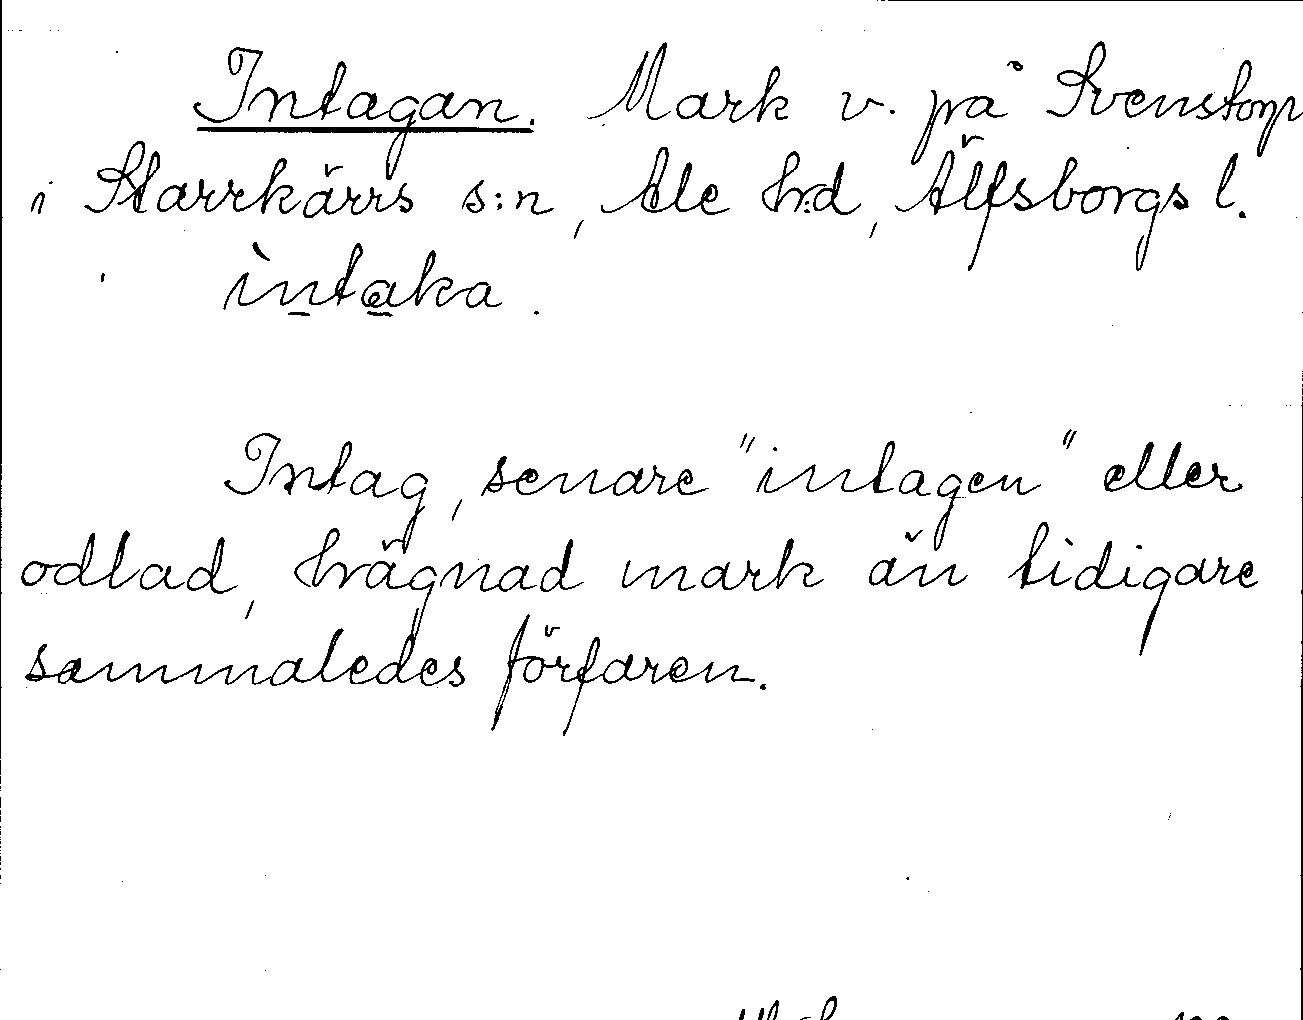 Intagan. Mark v. på Svenstorp
i Starrkärrs s:n, Ale h:d, Älfsborgs l.
ìntaka.
Intag, senare "intagen" eller
odlad, hägnad mark än tidigare
sammaledes förfaren.